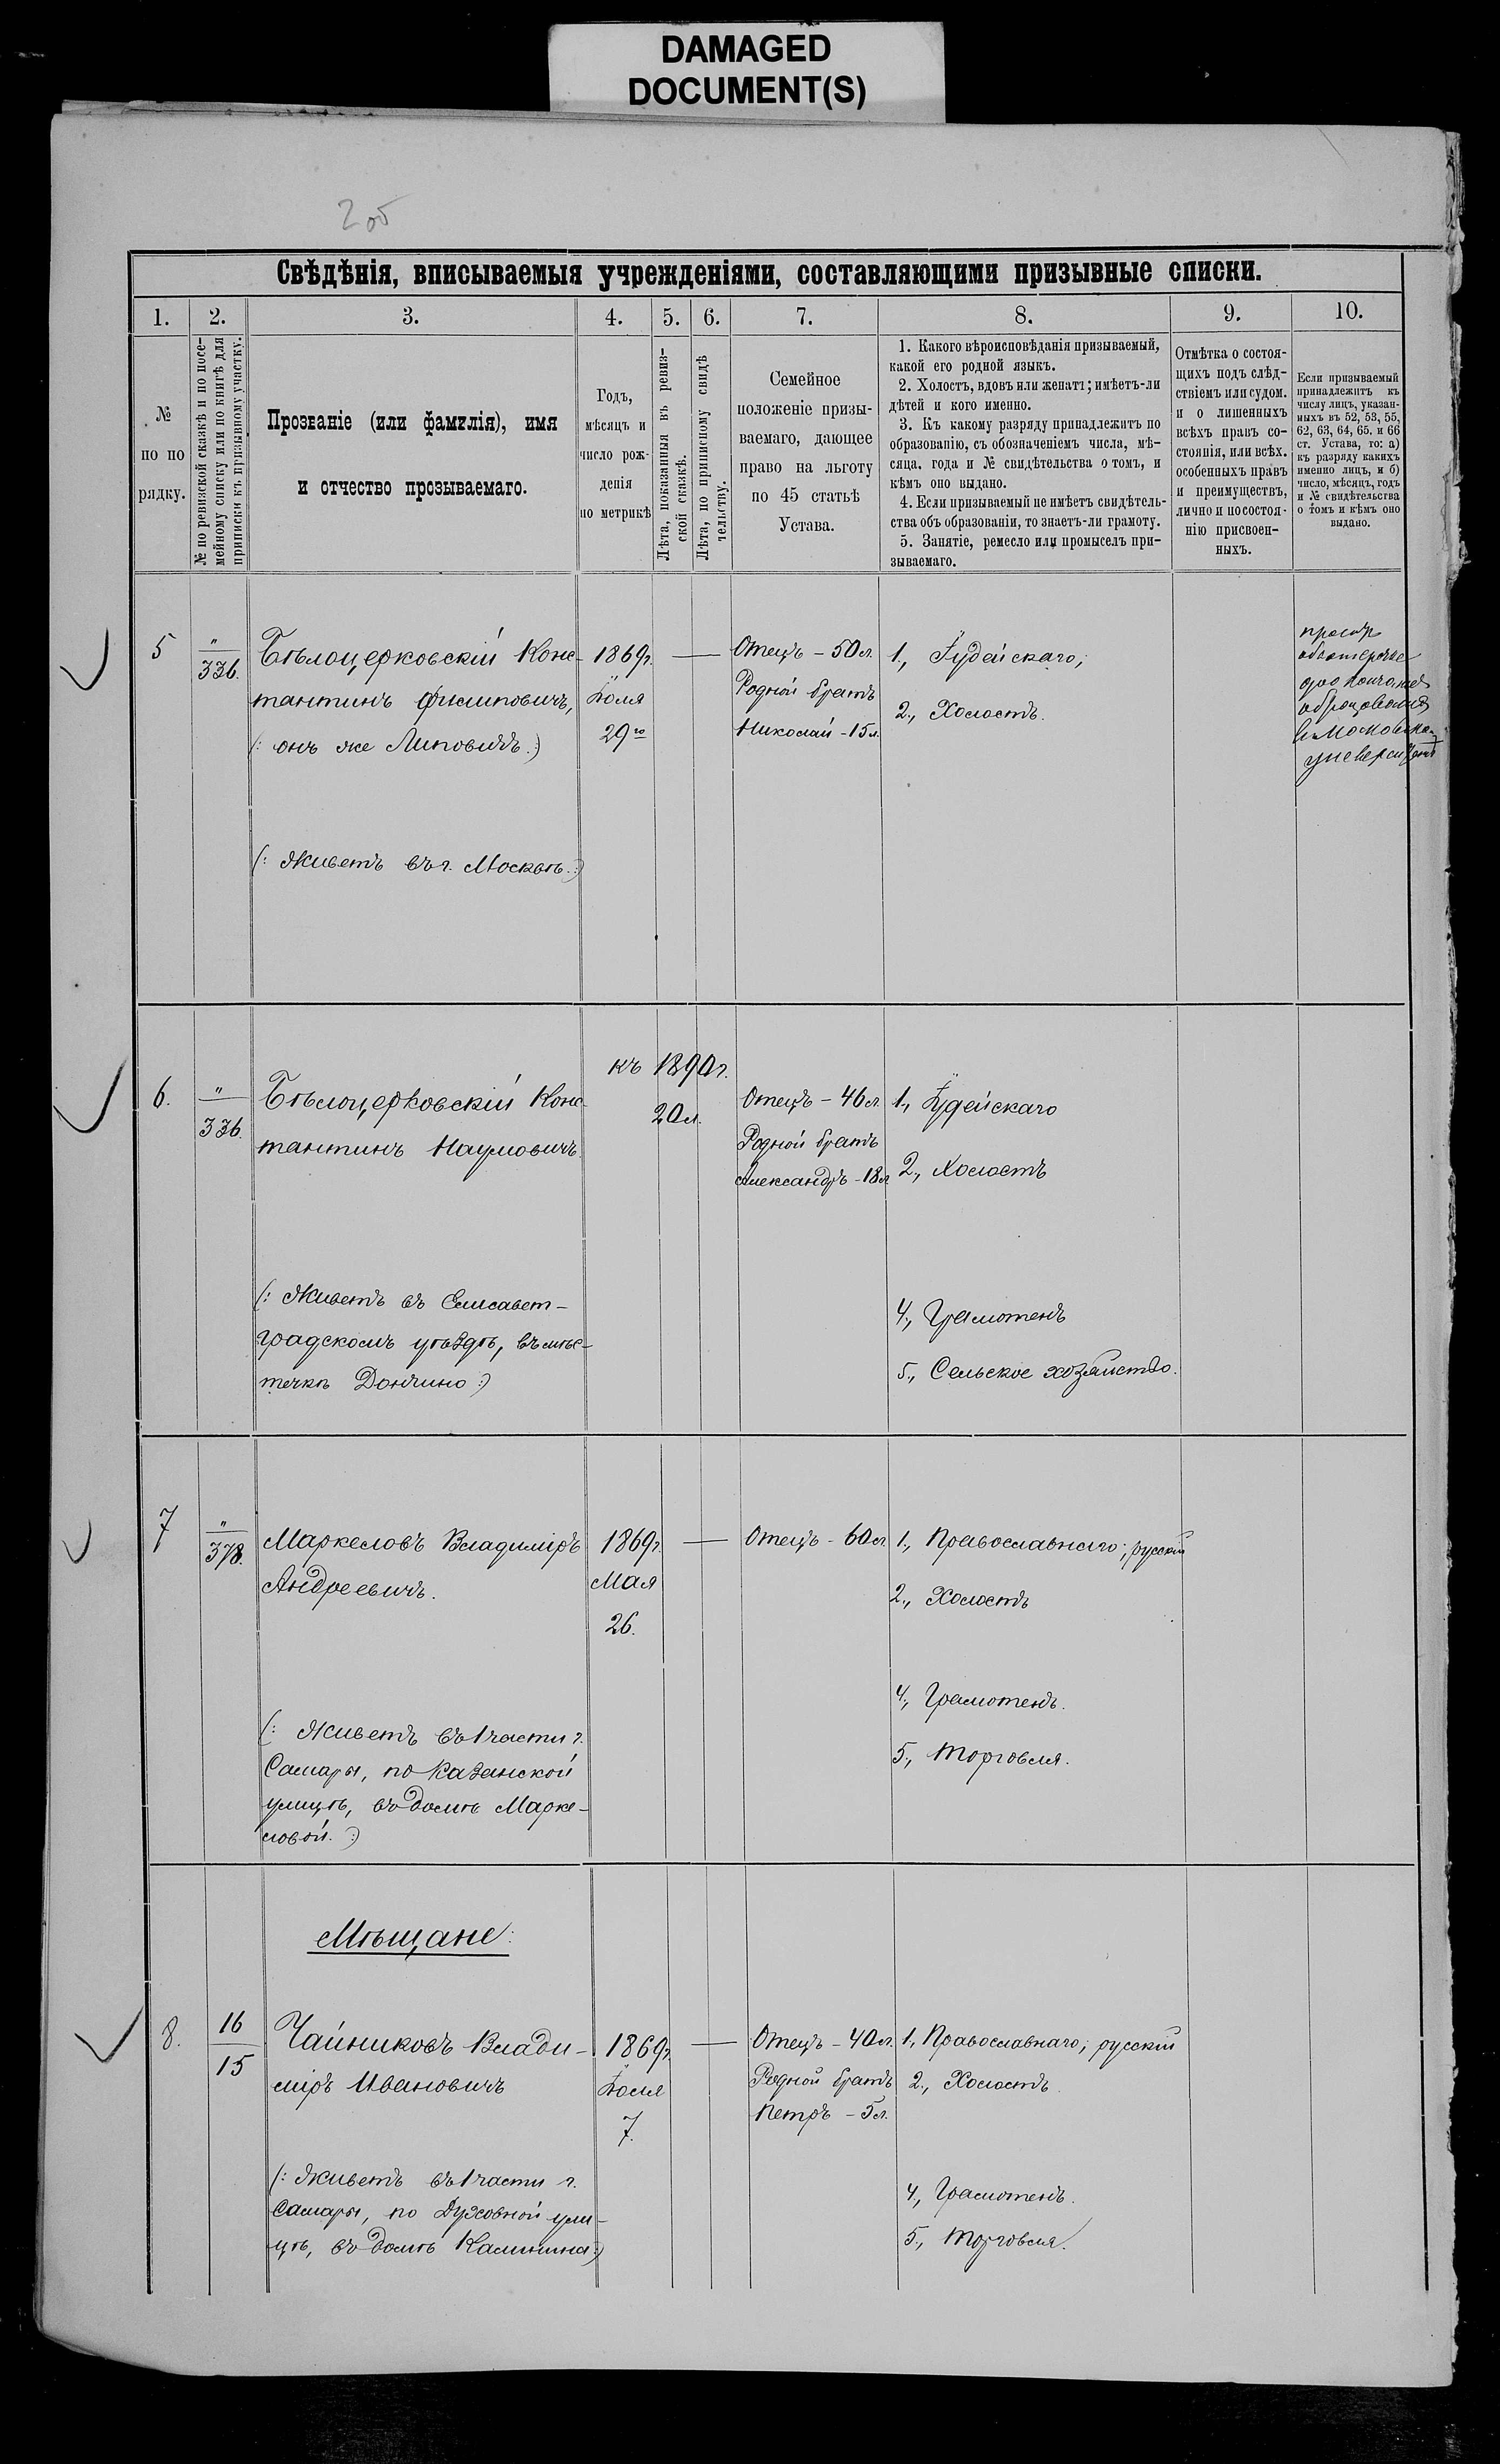 DAMAGED
DOCUMENT(S)
2об
Свѣдѣнія, вписываемыя учрежденіями, составляющими призывные списки.
1.
2.
3.
4.
5.
6.
7.
8.
9.
10.
№
по по
рядку.
№ по ревизской сказкѣ и по посе-
мейному списку или по книгѣ для
приписки къ призывному участку.
Прозваніе (или фамилія), имя
и отчество прозываемаго.
Годъ,
мѣсяцъ и
число рож-
денія
по метрикѣ
Лѣта, показанныя въ ревиз-
ской сказкѣ.
Лѣта, по приписному свидѣ
тельству.
Семейное
положеніе призы-
ваемаго, дающее
право на льготу
по 45 статьѣ
Устава.
1. Какого вѣроисповѣданія призываемый,
какой его родной языкъ.
2. Холостъ, вдовъ или женатъ; имѣетъ-ли
дѣтей и кого именно.
3. Къ какому разряду принадлежитъ по
образованію, съ обозначеніемъ числа, мѣ-
сяца, года и № свидѣтельства о томъ, и
кѣмъ оно выдано.
4. Если призываемый не имѣетъ свидѣтель-
ства объ образованіи, то знаетъ-ли грамоту.
5. Занятіе, ремесло или промыселъ при-
зываемаго.
Отмѣтка о состоя-
щихъ подъ слѣд-
ствіемъ или судом.
и о лишенныхъ
всѣхъ правъ со-
стоянія, или всѣх.
особенныхъ правъ
и преимуществъ,
лично и по состоя-
нію присвоен-
ныхъ.
Если призываемый
принадлежитъ къ
числу лицъ, указан-
ныхъ въ 52, 53, 55,
62, 63, 64, 65. и 66
ст. Устава, то: а)
къ разряду какихъ
именно лицъ, и б)
число, мѣсяцъ, годъ
и № свидѣтельства
о томъ и кѣмъ оно
выдано.
5
"
336.
Бѣлоцерковскій Конс-
тантинъ Филиповичъ,
(: онъ же Липовичъ.:)
(: Живетъ въ г. Москвѣ.:)
1869г.
Іюля
29го
Отецъ – 50 л.
Родной братъ
Николай – 15 л.
1., Іудейскаго;
2., Холостъ.
до окончанія
образованія
6.
"
336.
Бѣлоцерковскій Конс-
тантинъ Наумовичъ.
(: Живетъ въ Елисавет-
градскомъ уѣздѣ, въ мѣс-
течкѣ Дончино:)
къ 1890г.
20 л.
Отецъ – 46 л.
Родной братъ
Александръ – 18 л.
1., Іудейскаго
2., Холостъ
4., Грамотенъ
5., Сельское хозяйство.
7
"
378.
Маркеловъ Владиміръ
Андреевичъ.
(: Живетъ въ 1 части г.
Самары, по Казанской
улицѣ, въ домѣ Марке-
ловой.:)
1869г.
Мая
26.
Отецъ – 60 л.
1., Православнаго; русскій
2., Холостъ
4., Грамотенъ.
5., Торговля.
Мѣщане:
8.
16
15
Чайниковъ Влади-
міръ Ивановичъ
(: Живетъ въ 1 части г.
Самары, по Духовной ули-
цѣ, въ домѣ Калинина:)
1869г.
Іюля
7.
Отецъ – 40 л.
Родной братъ
Петръ – 5 л.
1., Православнаго; русскій
2., Холостъ.
4., Грамотенъ.
5., Торговля.